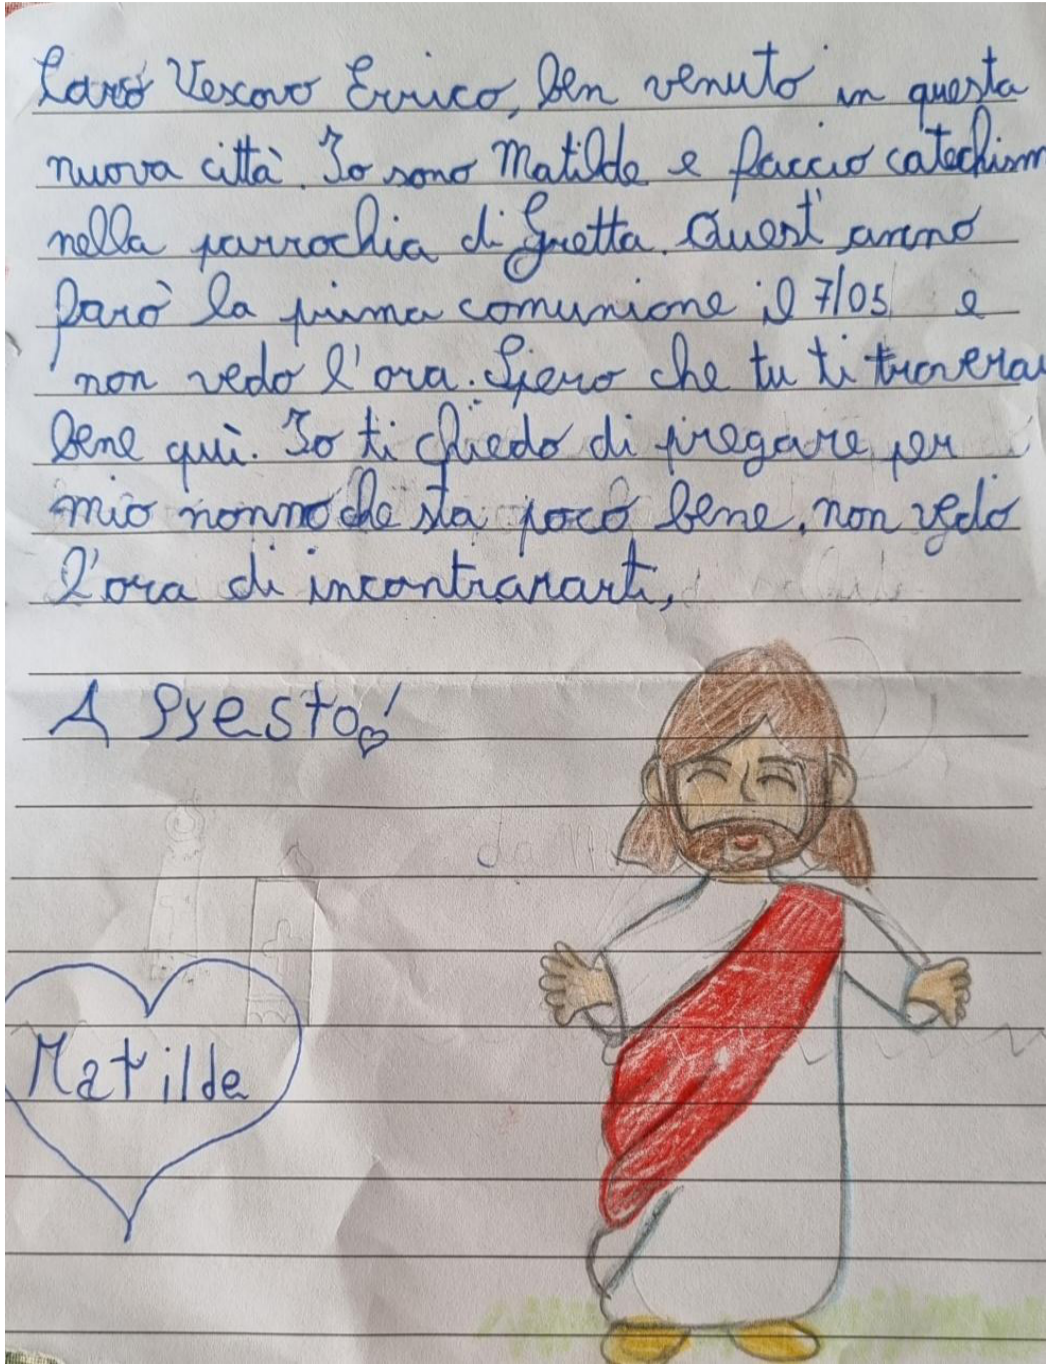 Caro Vescovo Errico, ben venuto in questa
nuova città. Io sono Matilde e faccio catechism
nella parrochia di Gretta. Quest'anno
farò la prima comunione il 7/05 e
non vedo l'ora. Spero che tu ti troverai
bene quì. Io ti chiedo di pregare per
mio nonno che sta poco bene, non vedo
l'ora di incontranarti,
A Presto!
Matilde